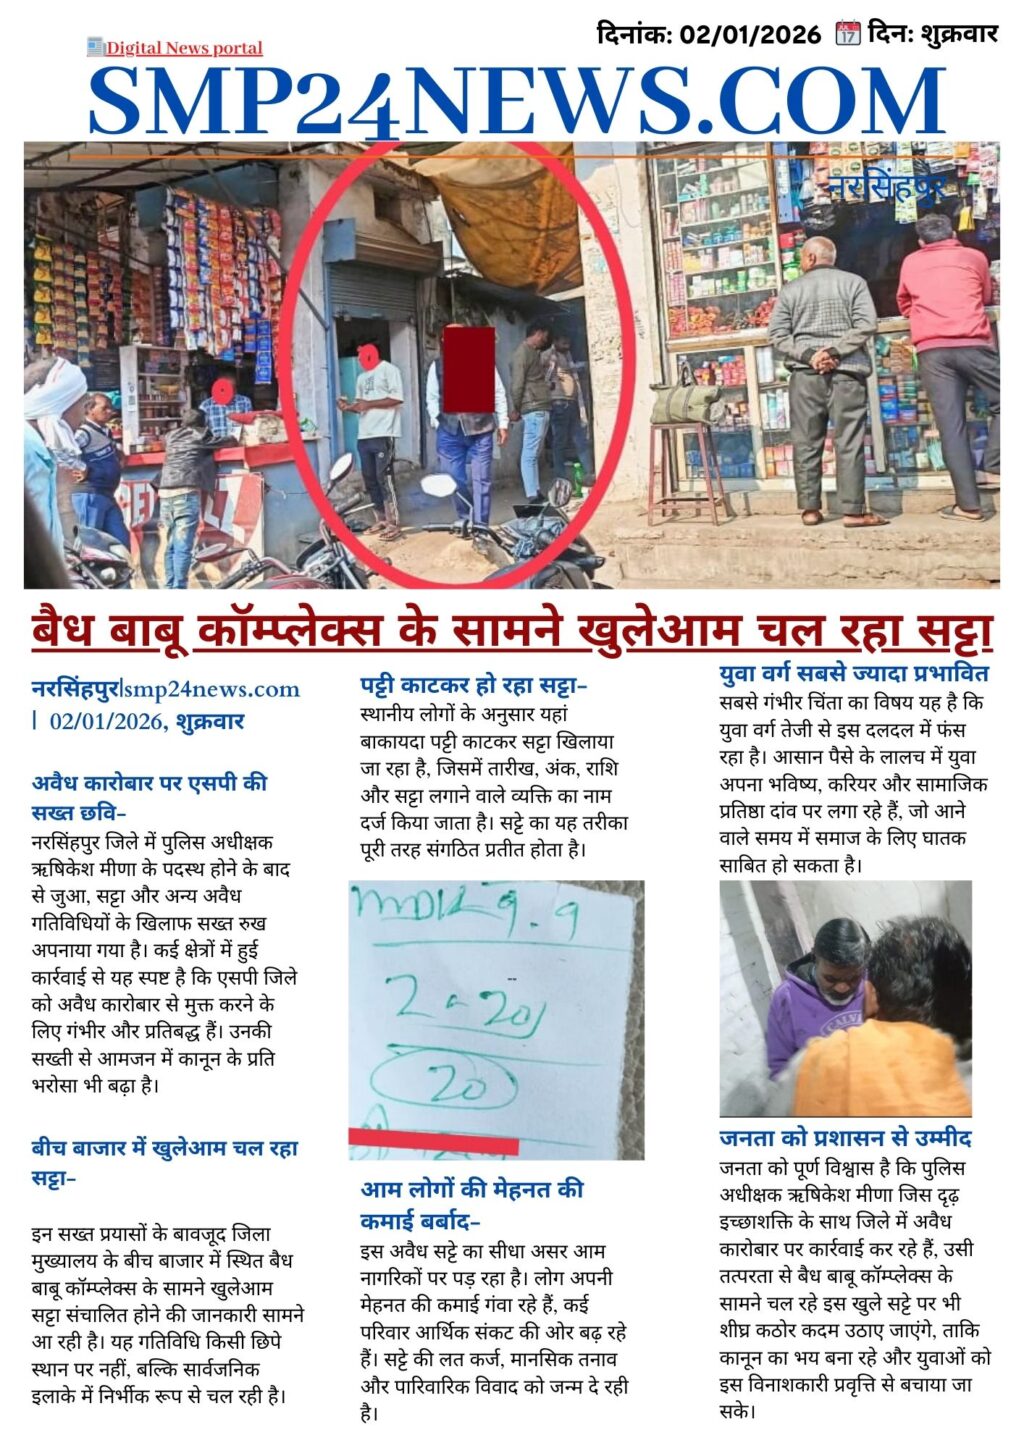 Digital News portal
दिनांक: 02/01/2026 17 दिन: शुक्रवार
SMP24NEWS.COM
नरसिंहपुर
बैध बाबू कॉम्प्लेक्स के सामने खुलेआम चल रहा सट्टा
नरसिंहपुर|smp24news.com
| 02/01/2026, शुक्रवार
अवैध कारोबार पर एसपी की
सख्त छवि–
नरसिंहपुर जिले में पुलिस अधीक्षक
ऋषिकेश मीणा के पदस्थ होने के बाद
से जुआ, सट्टा और अन्य अवैध
गतिविधियों के खिलाफ सख्त रुख
अपनाया गया है। कई क्षेत्रों में हुई
कार्रवाई से यह स्पष्ट है कि एसपी जिले
को अवैध कारोबार से मुक्त करने के
लिए गंभीर और प्रतिबद्ध हैं। उनकी
सख्ती से आमजन में कानून के प्रति
भरोसा भी बढ़ा है।
बीच बाजार में खुलेआम चल रहा
सट्टा–
इन सख्त प्रयासों के बावजूद जिला
मुख्यालय के बीच बाजार में स्थित बैध
बाबू कॉम्प्लेक्स के सामने खुलेआम
सट्टा संचालित होने की जानकारी सामने
आ रही है। यह गतिविधि किसी छिपे
स्थान पर नहीं, बल्कि सार्वजनिक
इलाके में निर्भीक रूप से चल रही है।
पट्टी काटकर हो रहा सट्टा–
स्थानीय लोगों के अनुसार यहां
बाकायदा पट्टी काटकर सट्टा खिलाया
जा रहा है, जिसमें तारीख, अंक, राशि
और सट्टा लगाने वाले व्यक्ति का नाम
दर्ज किया जाता है। सट्टे का यह तरीका
पूरी तरह संगठित प्रतीत होता है।
9.9
2 20
20
आम लोगों की मेहनत की
कमाई बर्बाद–
इस अवैध सट्टे का सीधा असर आम
नागरिकों पर पड़ रहा है। लोग अपनी
मेहनत की कमाई गंवा रहे हैं, कई
परिवार आर्थिक संकट की ओर बढ़ रहे
हैं। सट्टे की लत कर्ज, मानसिक तनाव
और पारिवारिक विवाद को जन्म दे रही
है।
युवा वर्ग सबसे ज्यादा प्रभावित
सबसे गंभीर चिंता का विषय यह है कि
युवा वर्ग तेजी से इस दलदल में फंस
रहा है। आसान पैसे के लालच में युवा
अपना भविष्य, करियर और सामाजिक
प्रतिष्ठा दांव पर लगा रहे हैं, जो आने
वाले समय में समाज के लिए घातक
साबित हो सकता है।
जनता को प्रशासन से उम्मीद
जनता को पूर्ण विश्वास है कि पुलिस
अधीक्षक ऋषिकेश मीणा जिस दृढ़
इच्छाशक्ति के साथ जिले में अवैध
कारोबार पर कार्रवाई कर रहे हैं, उसी
तत्परता से बैध बाबू कॉम्प्लेक्स के
सामने चल रहे इस खुले सट्टे पर भी
शीघ्र कठोर कदम उठाए जाएंगे, ताकि
कानून का भय बना रहे और युवाओं को
इस विनाशकारी प्रवृत्ति से बचाया जा
सके।